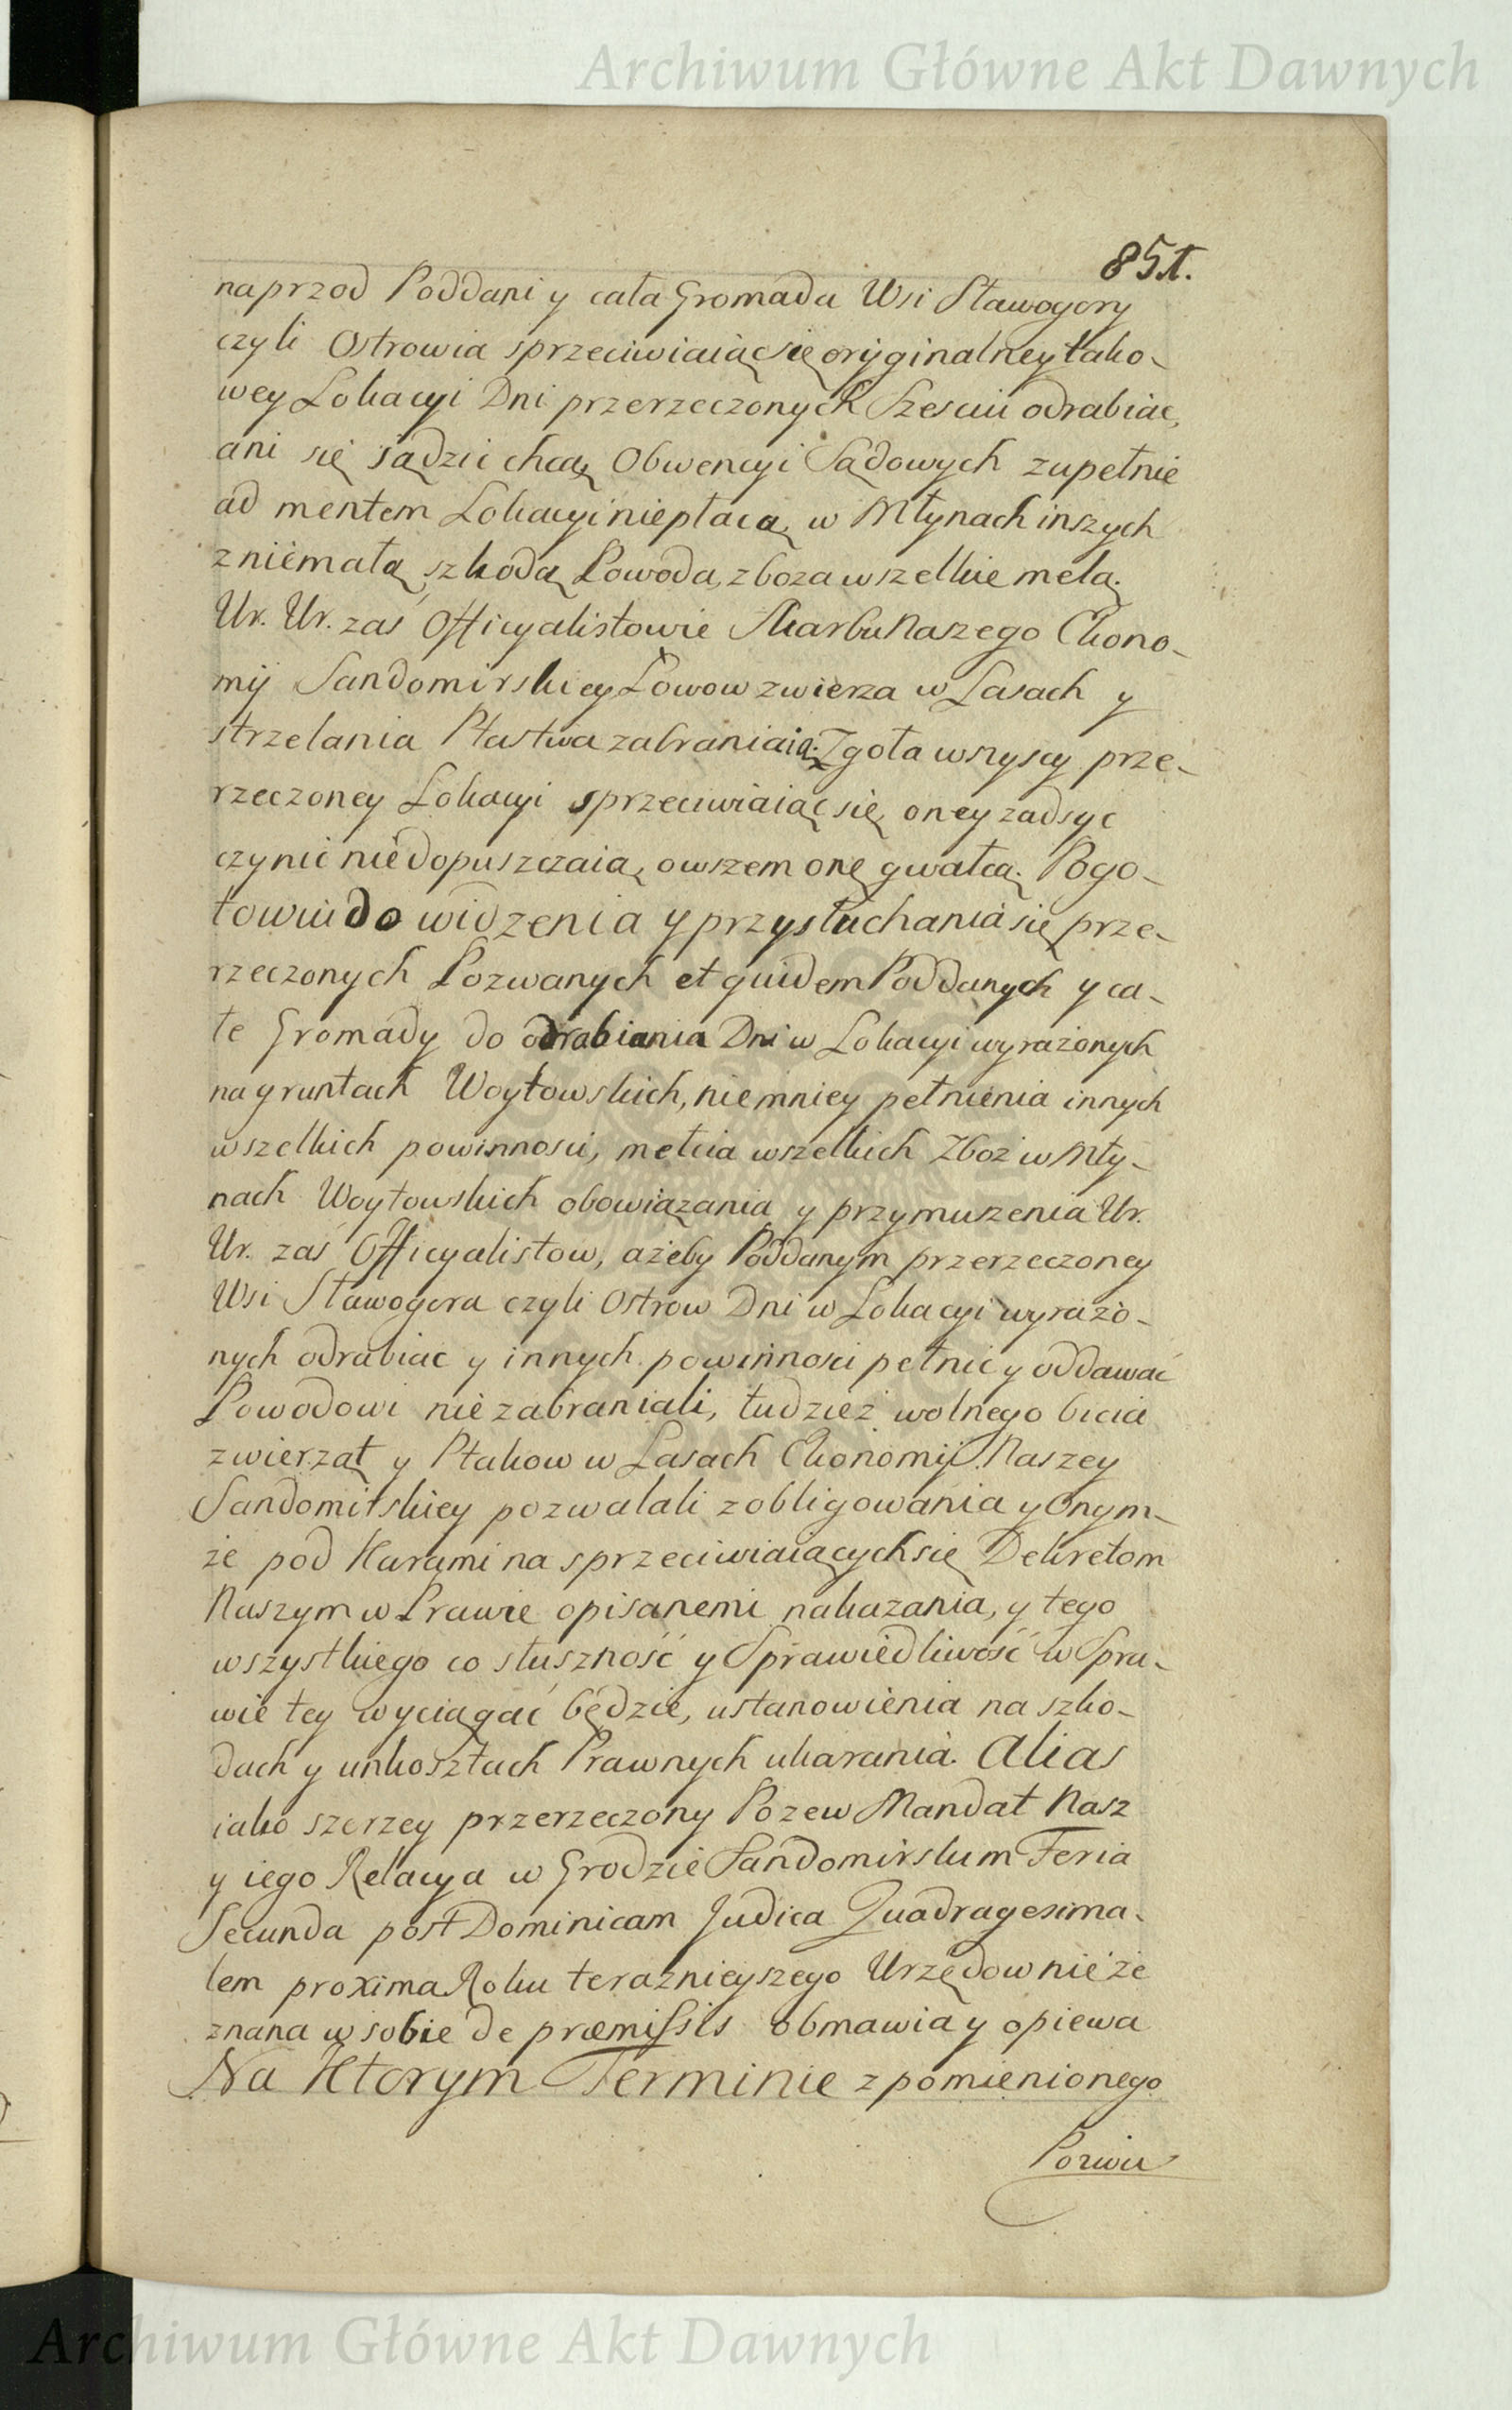 Archiwum Główne Akt Dawnych
851.
naprzod Poddani y cała Gromada Wsi Sławogory
czyli Ostrowia sprzeciwiaiąc się oryginalney tako-
wey Lokacyi Dni przerzeczonych Szesciu odrabiac,
ani się sądzic chcą, Obwencyi Sądowych zupełnie
ad mentem Lokacyi niepłacą, w Młynach inszych
z niemałą szkodą Powoda, zboza wszelkie melą.
Ur. Ur. zaś Officyalistowie Skarbu Naszego Ekono-
mij Sandomirskiey Łowow zwierza w Lasach y
strzelania Ptastwa zabraniaią. Zgoła wszyscy prze-
rzeczoney Lokacyi sprzeciwiaiąc się, oney zadsyc
czynic niedopuszczaią, owszem onę gwałcą. Pogo-
towiu do widzenia y przysłuchania się prze-
rzeczonych Pozwanych et quidem Poddanych y ca-
łe Gromady do odrabiania Dni w Lokacyi wyrażonych
na gruntach Woytowskich, niemniey pełnienia innych
wszelkich powinnosci, mełcia wszelkich Zboż w Mły-
nach Woytowskich obowiązania y przymuszenia Ur.
Ur. zaś Officyalistow, ażeby Poddanym przerzeczoney
Wsi Sławogora czyli Ostrow Dni w Lokacyi wyrażo-
nych odrabiac y innych powinnosci pełnic y oddawać
Powodowi nie zabraniali, tudzież wolnego bicia
zwierząt y Ptakow w Lasach Ekonomij Naszey
Sandomirskiey pozwalali zobligowania y Onym-
że pod Karami na sprzeciwiaiących się Dekretom
Naszym w Prawie opisanemi nakazania, y tego
wszystkiego co słuszność y Sprawiedliwość w Spra-
wie tey wyciągać będzie, ustanowienia na szko-
dach y unkosztach Prawnych ukarania. Alias
iako szerzey przerzeczony Pozew Mandat Nasz
y iego Relacya w Grodzie Sandomirskim Feria
Secunda post Dominicam Judica Quadragesima-
lem proxima Roku teraznieyszego Urzędownie ze
znana w sobie de præmissis obmawia y opiewa
Na Ktorym Terminie z pomienionego
Pozwu
Archiwum Główne Akt Dawnych